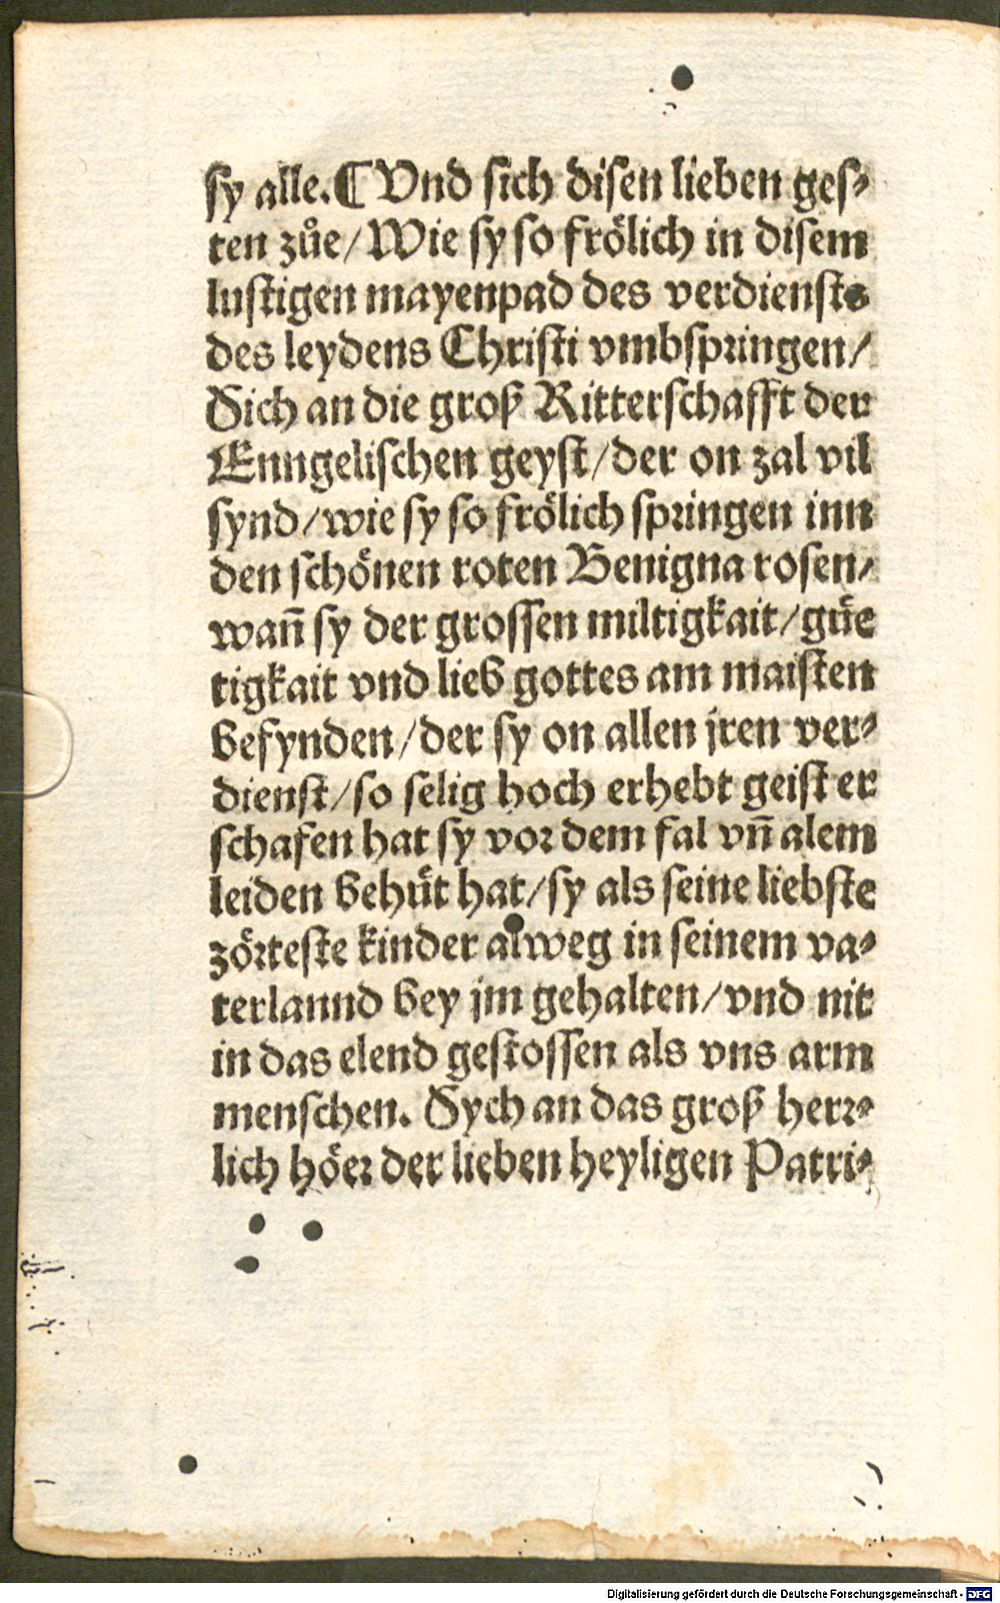 sy alle. ¶ Vnd sich disen lieben ges⸗
ten zůe/ Wie sy so frölich in disem
lustigen mayenpad des verdiensts
des leydens Christi vmbspringen/
Sich an die groß Ritterschafft der
Enngelischen geyst/ der on zal vil
synd/ wie sy so frölich springen inn
den schönen roten Benigna rosen/
wañ sy der grossen miltigkait/ güe
tigkait vnd lieb gottes am maisten
befynden/ der sy on allen jren ver⸗
dienst/ so selig hoch erhebt geist er
schafen hat sy vor dem fal vñ alem
leiden behüt hat/ sy als seine liebste
zörteste kinder alweg in seinem va⸗
terlannd bey jm gehalten/ vnd nit
in das elend gestossen als vns arm
menschen. Sych an das groß herr⸗
lich höer der lieben heyligen Patri⸗
Digitalisierung gefördert durch die Deutsche Forschungsgemeinschaft - DFG